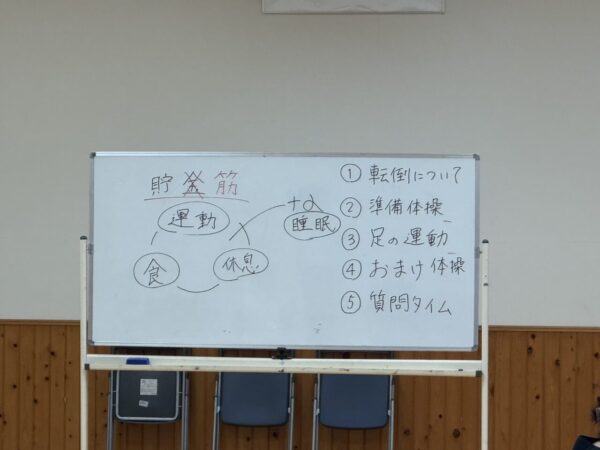 貯金筋
運動
食
休息
+α
睡眠
① 転倒について
② 準備体操
③ 足の運動
④ おまけ体操
⑤ 質問タイム